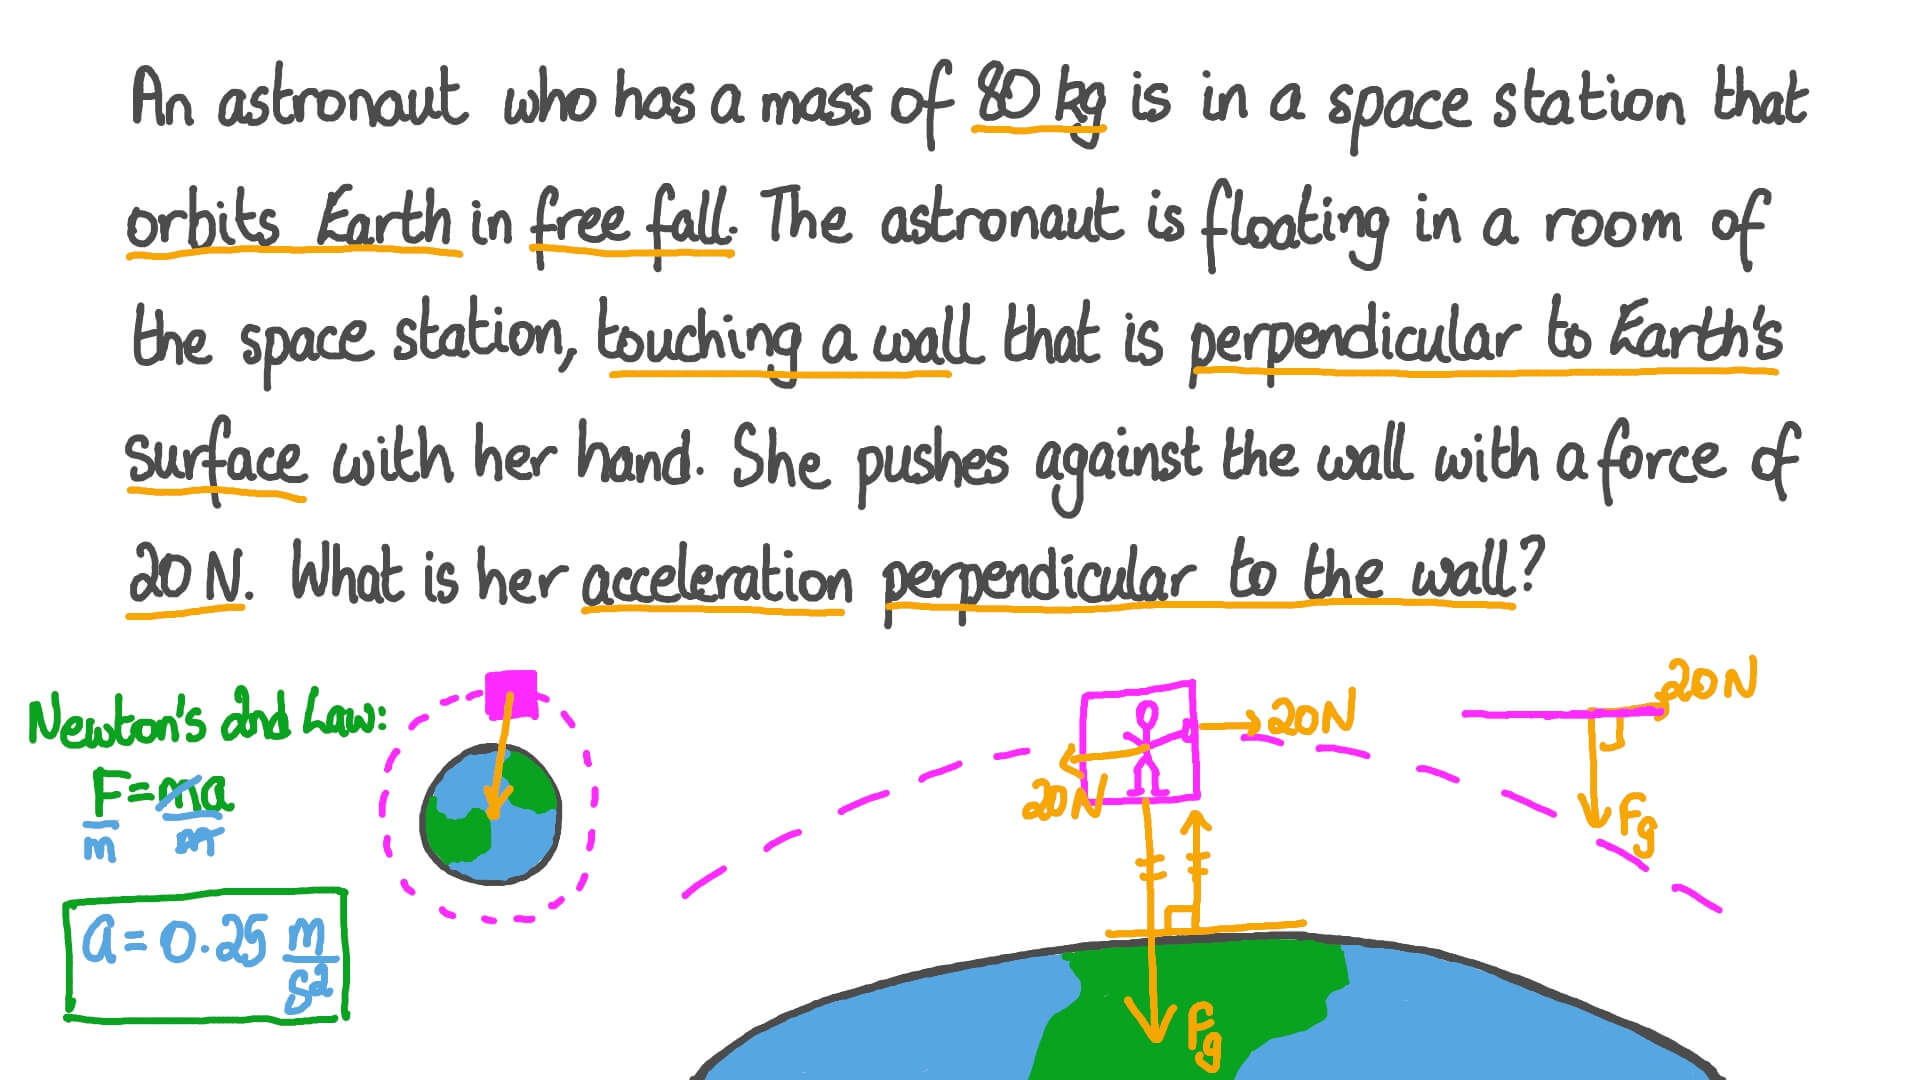 An astronaut who has a mass of 80 kg is in a space station that
orbits Earth in free fall. The astronaut is floating in a room of
the space station, touching a wall that is perpendicular to Earth's
surface with her hand. She pushes against the wall with a force of
20 N. What is her acceleration perpendicular to the wall?
Newton's 2nd Law:
F=ma
m m
a = 0.25 m/s²
20N
20N
Fg
20N
Fg